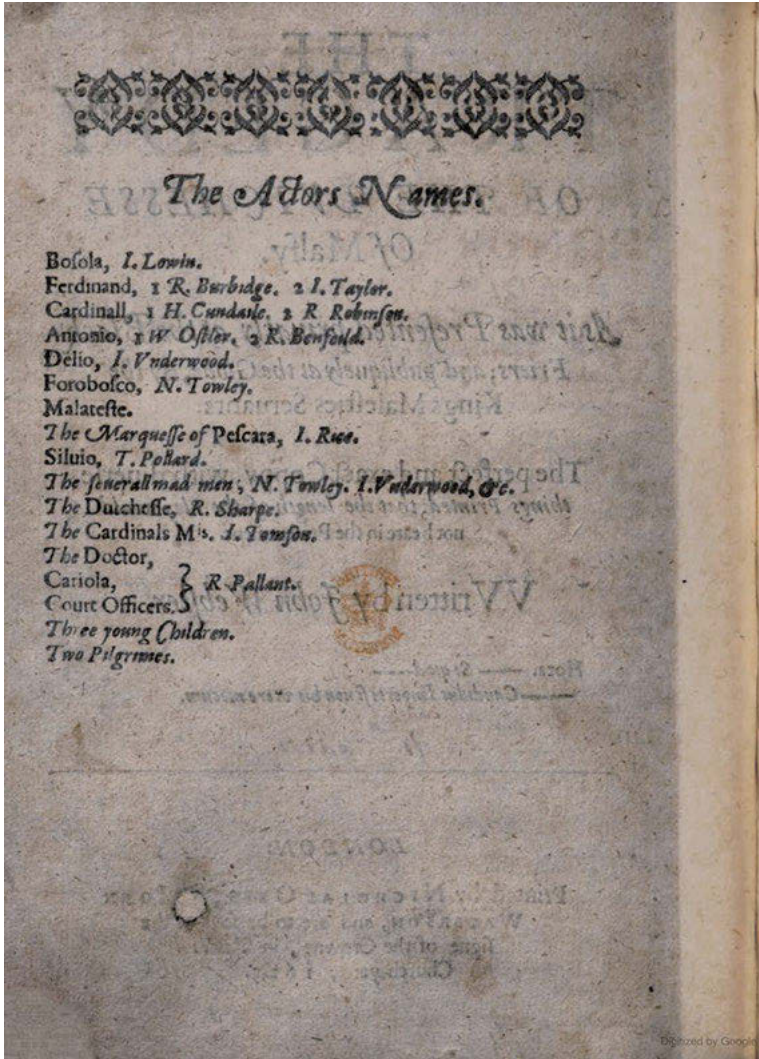 The Actors Names.
Bosola, I. Lowin.
Ferdinand, 1 R. Burbidge. 2 I. Taylor.
Cardinall, 1 H. Cundaile. 2 R Robinson.
Antonio, 1 W Ostler. 2 R. Benfeild.
Delio, I. Vnderwood.
Forobosco, N. Towley.
Malateste.
The Marquesse of Pescara, I. Rice.
Siluio, T. Pollard.
The seuerall mad men, N. Towley. I. Vnderwood, &c.
The Dutchesse, R. Sharpe.
The Cardinals Mis. I. Tomson.
The Doctor,
Cariola, } R Pallant.
Court Officers.
Three young Children.
Two Pilgrimes.
Digitized by Google